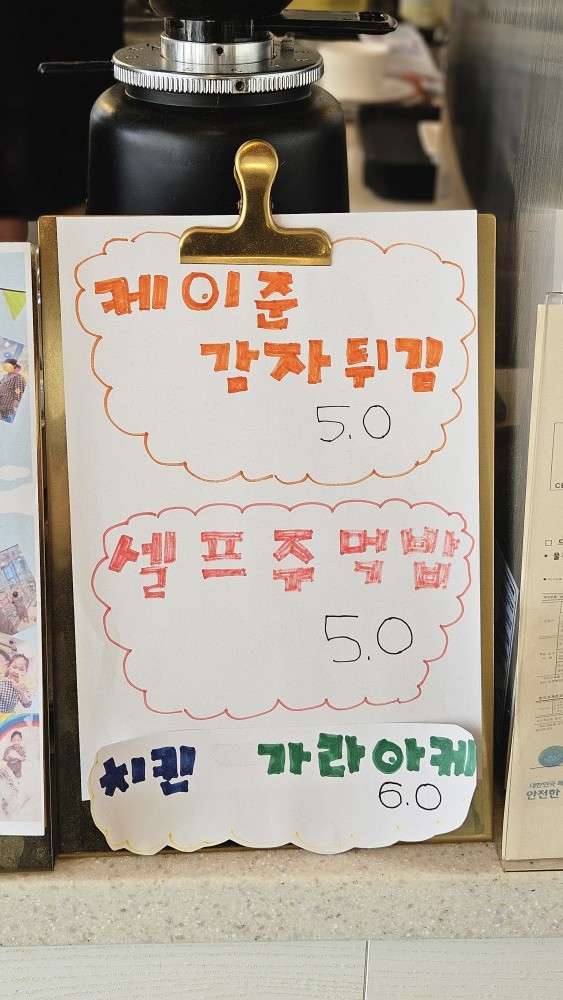 케이준
감자튀김
5.0
셀프주먹밥
5.0
치킨 가라아케
6.0
대한민국
안전한